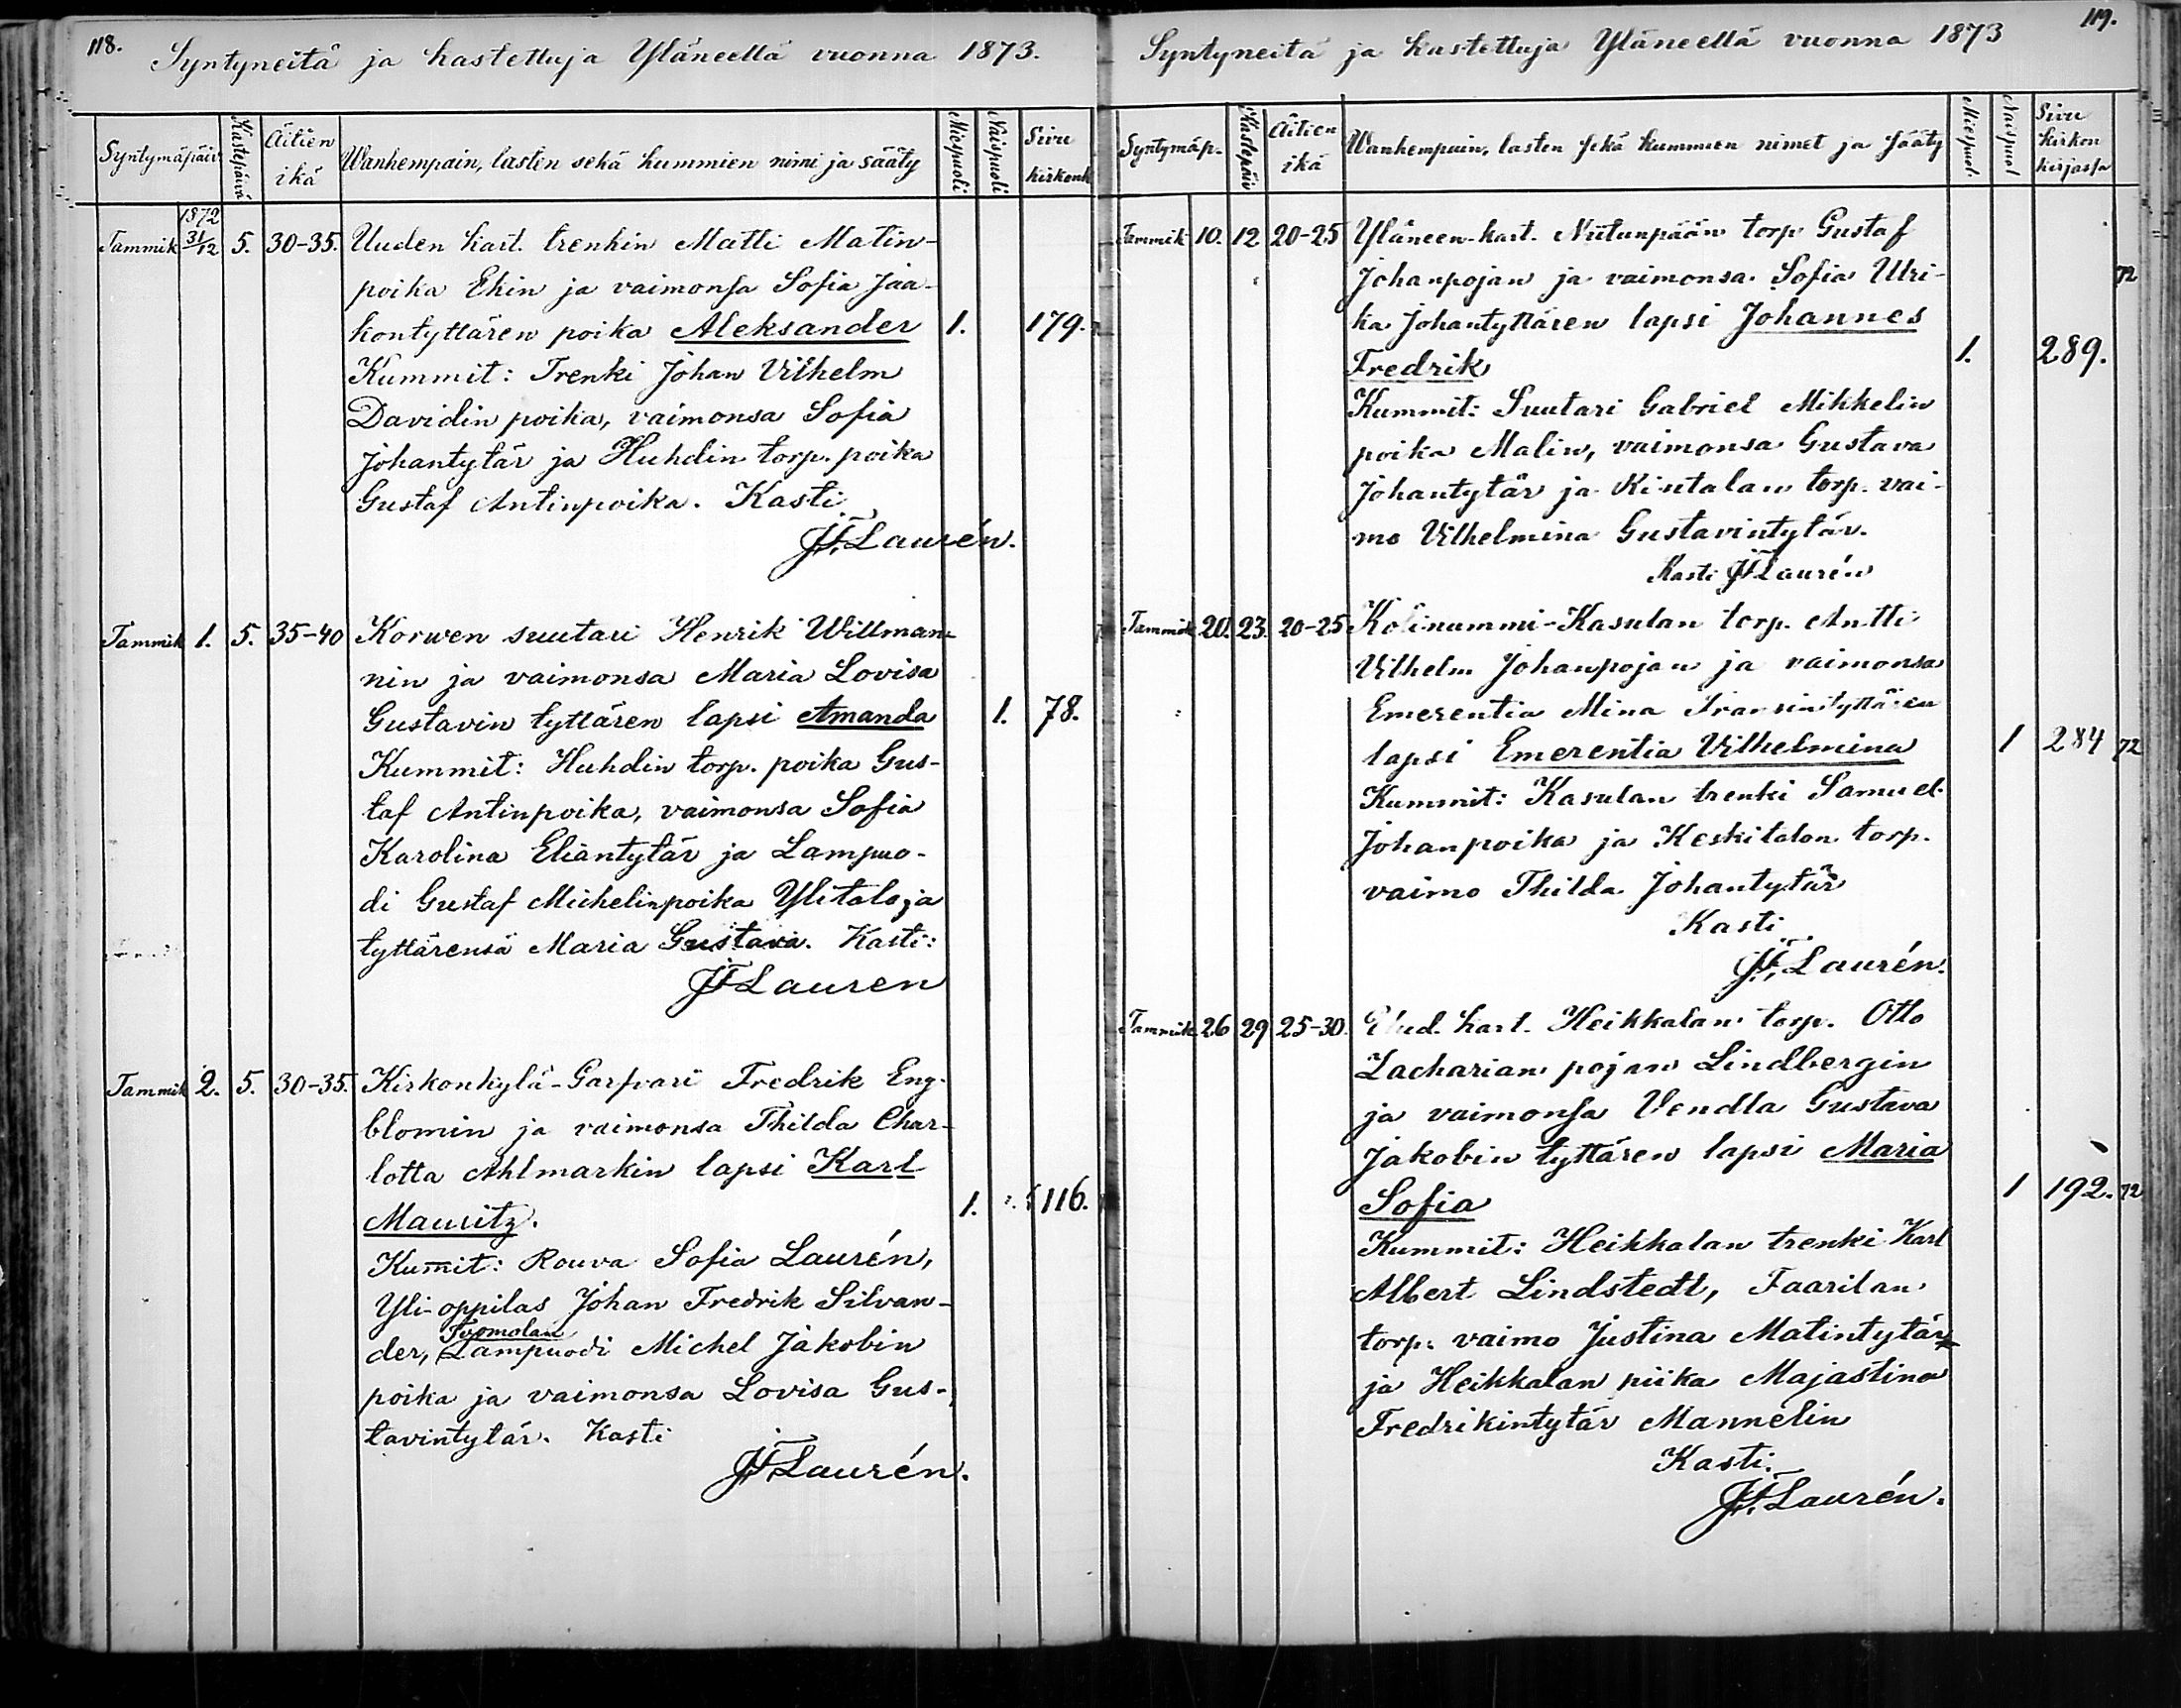 118.
Syntyneitä ja kastettuja Yläneellä vuonna 1873.
Syntymäpäiv
Kastepäivä
Äitien ikä
Wanhempain, lasten sekä kummien nimi ja sääty
Miespuoli
Naispuoli
Sivu kirkonk
Tammik 1872 31/12 5. 30-35. Uuden kart. trenkin Matti Matin-
poika Ekin ja vaimonsa Sofia Jaa-
kontyttären poika Aleksander 1. 179.
Kummit: Trenki Johan Vilhelm
Davidin poika, vaimonsa Sofia
Johantytär ja Huhdin torp. poika
Gustaf Antinpoika. Kasti
JF Laurén.
Tammik 1. 5. 35-40 Korwen suutari Henrik Willman-
nin ja vaimonsa Maria Lovisa
Gustavin tyttären lapsi Amanda 1. 78.
Kummit: Huhdin torp. poika Gus-
taf Antinpoika, vaimonsa Sofia
Karolina Eliantytär ja Lampuo-
di Gustaf Michelinpoika Ylitalo ja
tyttärensä Maria Gustava. Kasti:
JF Lauren
Tammik 2. 5. 30-35. Kirkonkylä-Garfvari Fredrik Eng-
blomin ja vaimonsa Thilda Char-
lotta Ahlmarkin lapsi Karl
Mauritz. 1. 116.
Kummit: Rouva Sofia Laurén,
Yli-oppilas Johan Fredrik Silvan-
der, Tuomolan Lampuodi Michel Jakobin
poika ja vaimonsa Lovisa Gus-
tavintytär. Kasti
JF Laurén.
119.
Syntyneitä ja kastettuja Yläneellä vuonna 1873
Syntymäp.
Kastepäiv
Äitien ikä
Wanhempain, lasten sekä kummien nimet ja sääty
Miespuol.
Naispuol
Sivu kirkon kirjassa
Tammik 10. 12 20-25 Yläneen-kart. Niitunpään torp Gustaf
Johanpojan ja vaimonsa Sofia Ulri- 72
ka Johantyttären lapsi Johannes
Fredrik 1. 289.
Kummit: Suutari Gabriel Mikkelin
poika Malin, vaimonsa Gustava
Johantytär ja Kintalan torp. vai-
mo Vilhelmina Gustavintytär.
Kasti JF Laurén
Tammik 20. 23. 20-25 Kolinummi-Kasulan torp. Antti
Vilhelm Johanpojan ja vaimonsa
Emerentia Mina Fransintyttären
lapsi Emerentia Vilhelmina 1 284 72
Kummit: Kasulan trenki Samuel
Johanpoika ja Keskitalon torp.
vaimo Thilda Johantytär
Kasti
JF Laurén.
Tammik 26 29 25-30. Uud. kart. Heikkalan torp. Otto
Zacharian pojan Lindbergin
ja vaimonsa Vendla Gustava
Jakobin tyttären lapsi Maria
Sofia 1 192. 72
Kummit: Heikkalan trenki Karl
Albert Lindstedt, Faarilan
torp. vaimo Justina Matintytär
ja Heikkalan piika Majastina
Fredrikintytär Mannelin
Kasti.
JF Laurén.